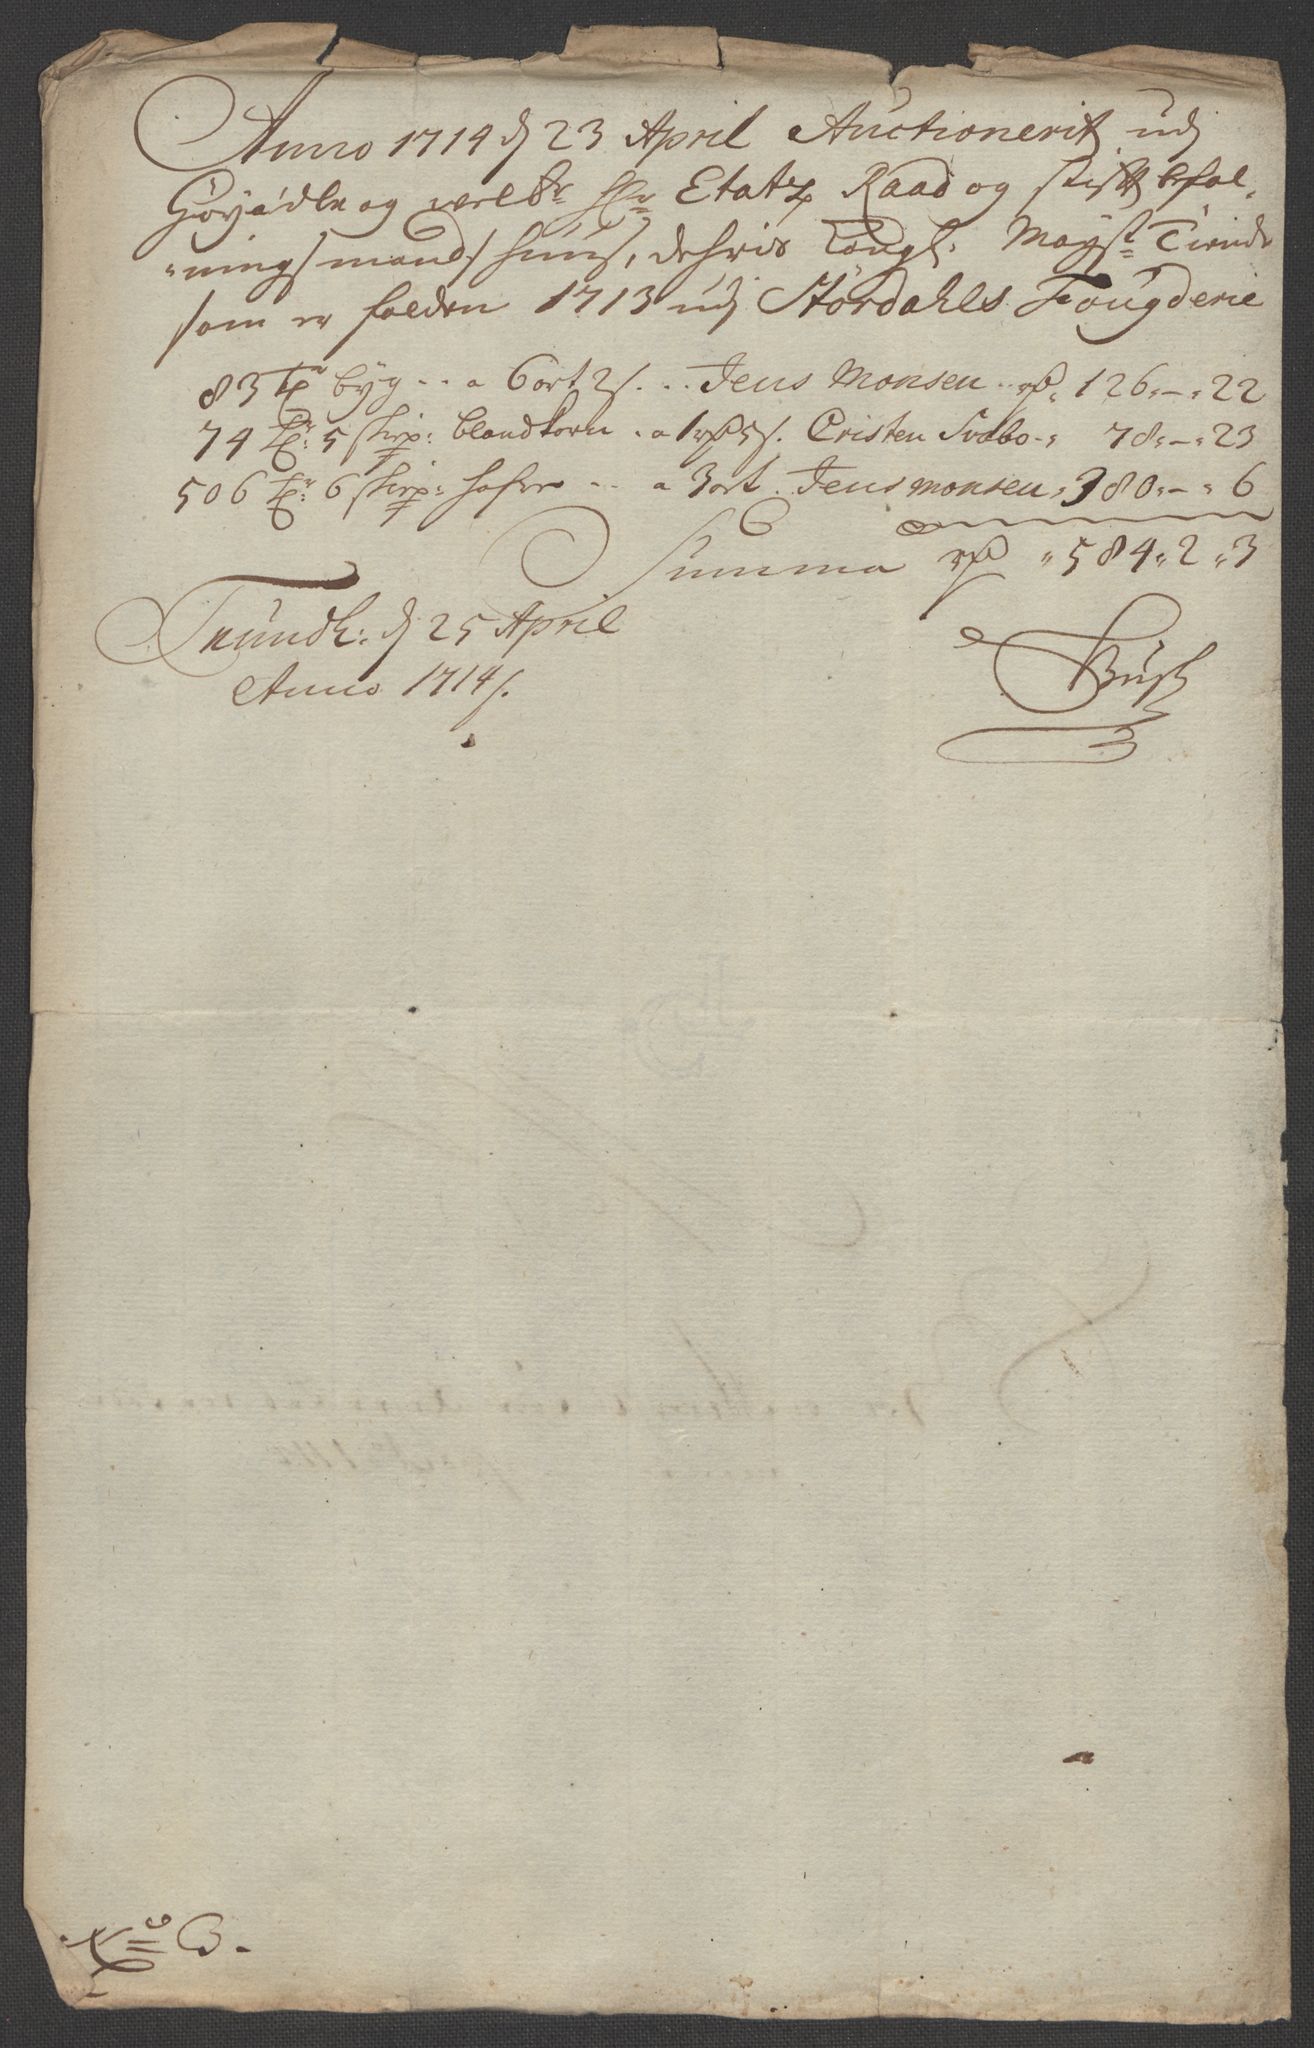 Anno 1714 d 23 April Auctionerit udj
Høyædle og velbr hlr Etatz Raad og stiftbefal-
ningsmands huus, dehvis Kongl: Mayst Tiende
som er falden 1713 udj Stördahls Fougderie
83 Tr byg .. a 6 ort 2 s. .. Jens Monsen .. rd. 126 " - " 22
74 tr: 5 skiep: blandkorn . a 1 rd 5 s. Cristen Svabo " 78 " - " 23
506 tr: 6 skiep: hafre .. a 3 ort. Jens Monsen " 380 " - " 6
Summa rd " 584 " 2 " 3
Trundh: d 25 April
Anno 1714 s.
Büsk
No B.